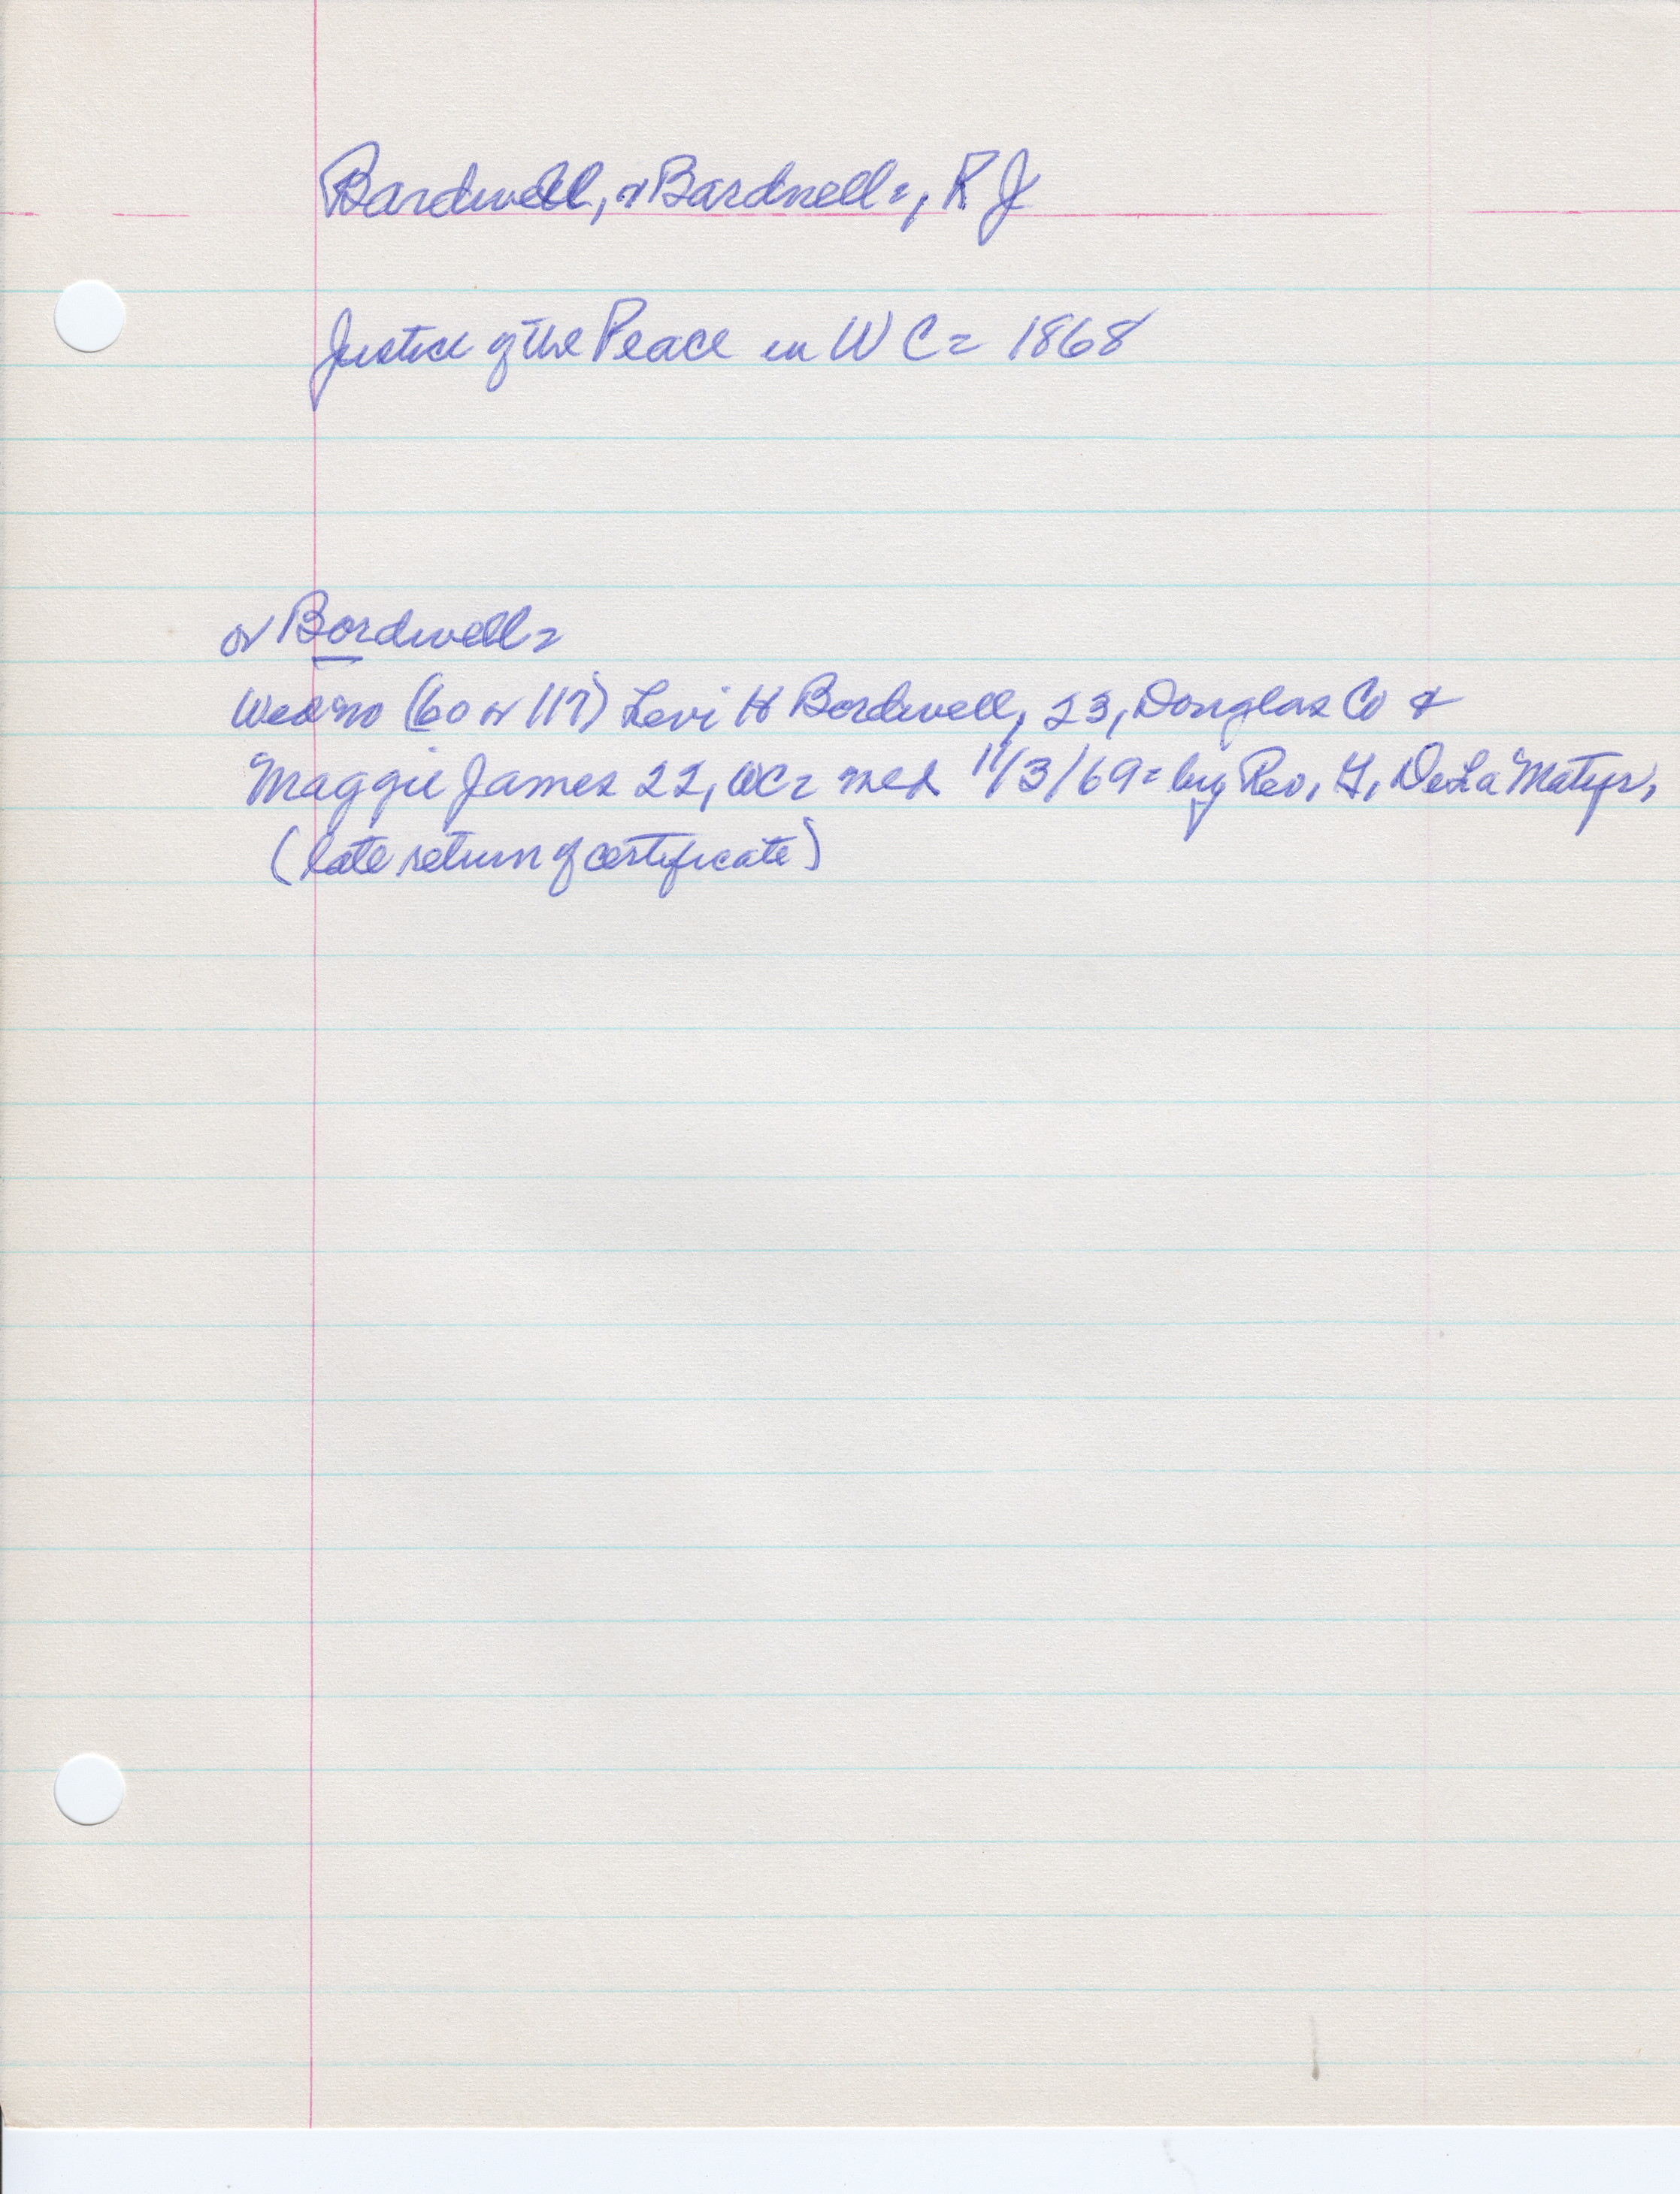 Bardwell, or Bardnell=, R J
Justice of the Peace in W C = 1868
or Bordwell=
Wed no (60 or 117) Levi H Bordwell, 23, Douglas Co &
Maggie James 22, WC= med 11/3/69= by Rev, G, DeLa Matyr,
(late return of certificate)